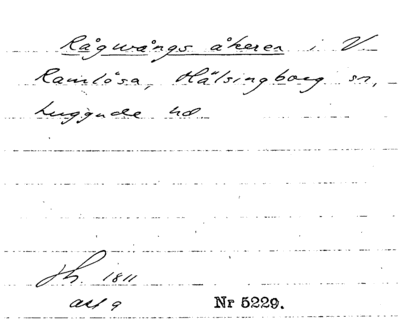 Rågwångs åkeren i V
Ramlösa, Hälsingborg sn,
Luggude hd
1811
akt 9
Nr 5229.